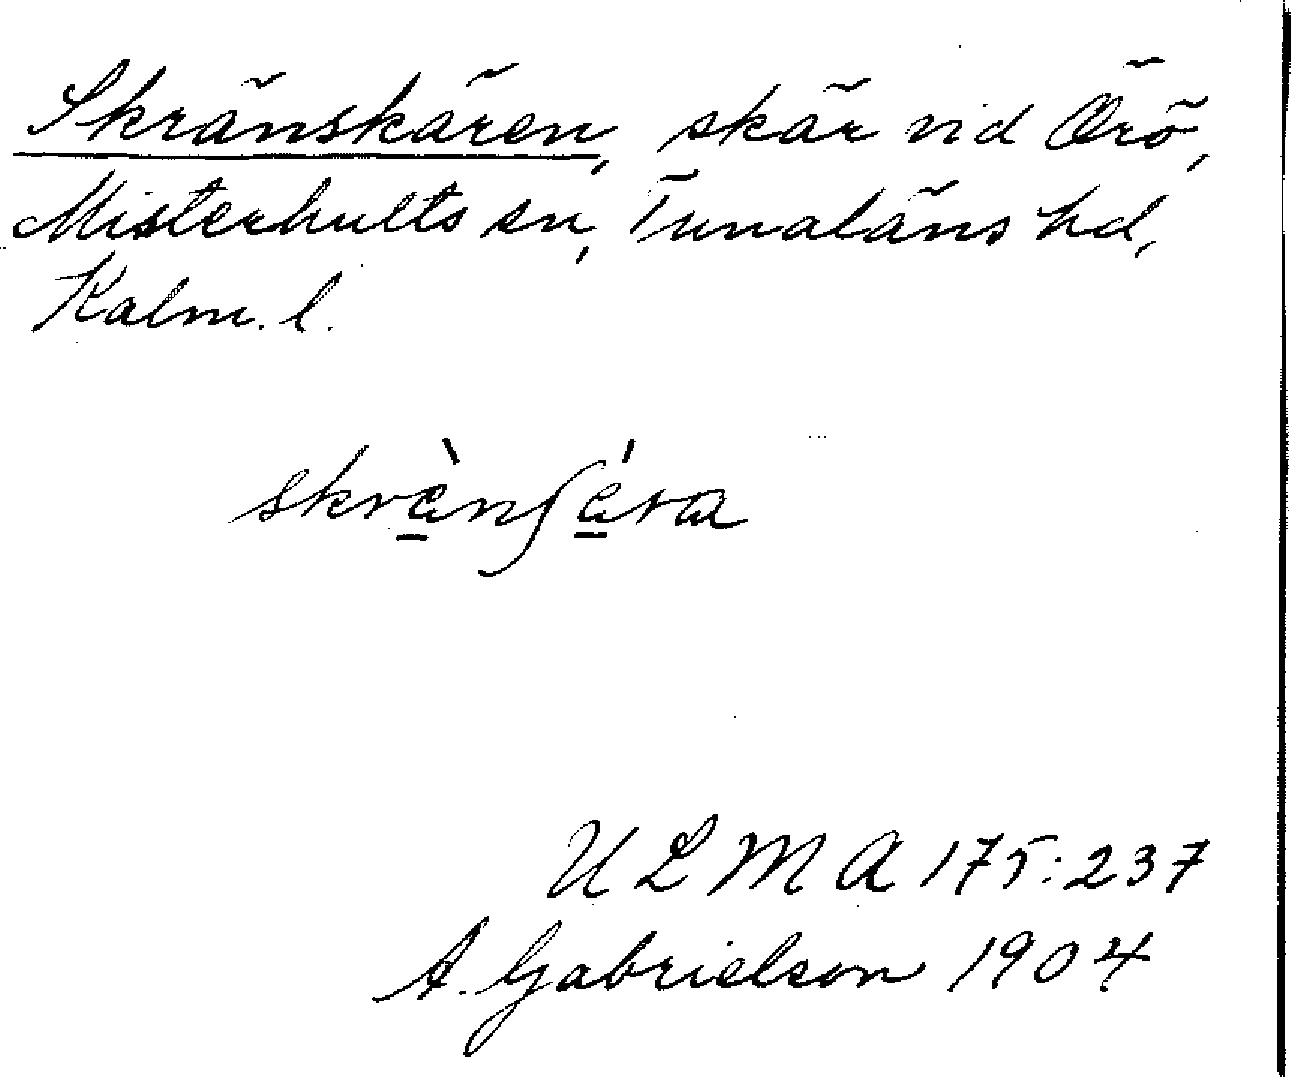 Skränskären, skär vid Örö,
Misterhults sn, Tunaläns hd,
Kalm. l.
skræ̀nʃǽra
ULMA 175:237
A. Gabrielson 1904